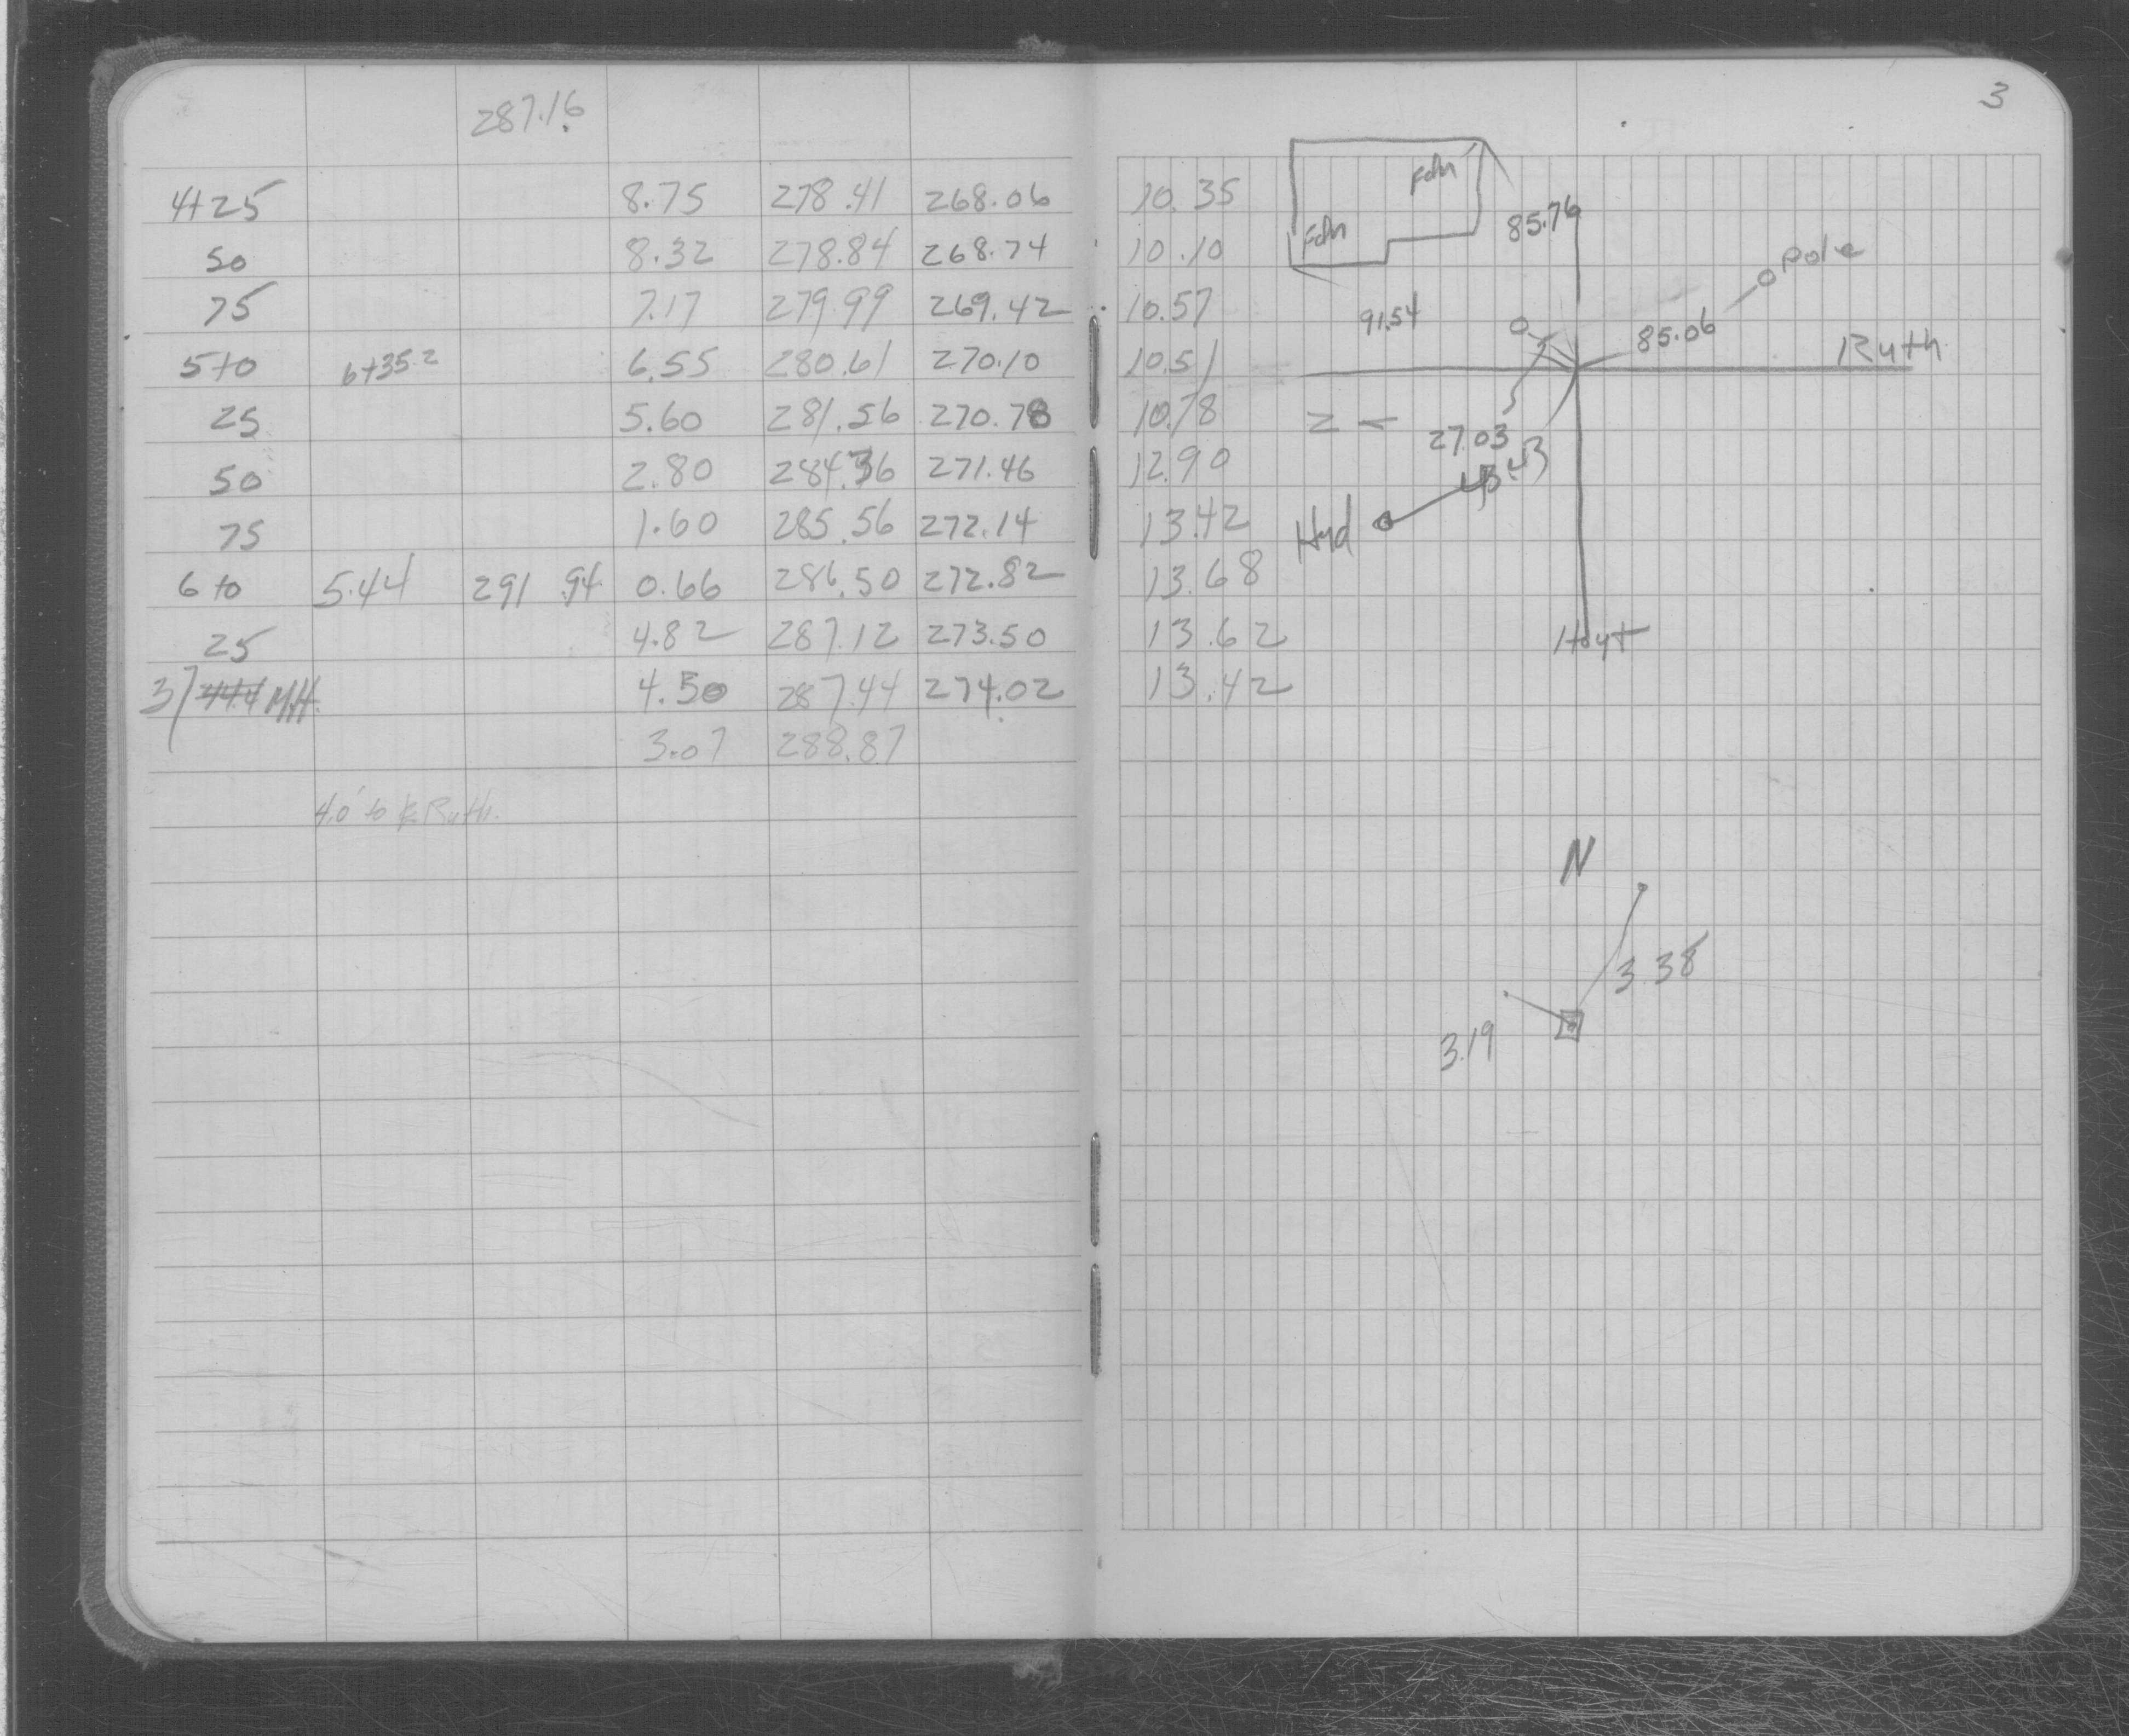 287.16
4+25 8.75 278.41 268.06
50 8.32 278.84 268.74
75 7.17 279.99 269.42
5+0 6+35.2 6.55 280.61 270.10
25 5.60 281.56 270.78
50 2.80 284.36 271.46
75 1.60 285.56 272.14
6+0 5.44 291.94 0.66 286.50 272.82
25 4.82 287.12 273.50
37 M.H. 4.50 287.44 274.02
3.07 288.87
4.0' to ℄ Ruth.
3
10.35
10.10
10.57
10.51
10.78
12.90
13.42
13.68
13.62
13.42
Fdn
Fdn
85.76
Pole
91.54
85.06
Ruth
Z
27.03
Hyd
Hoyt
N
3.38
3.19